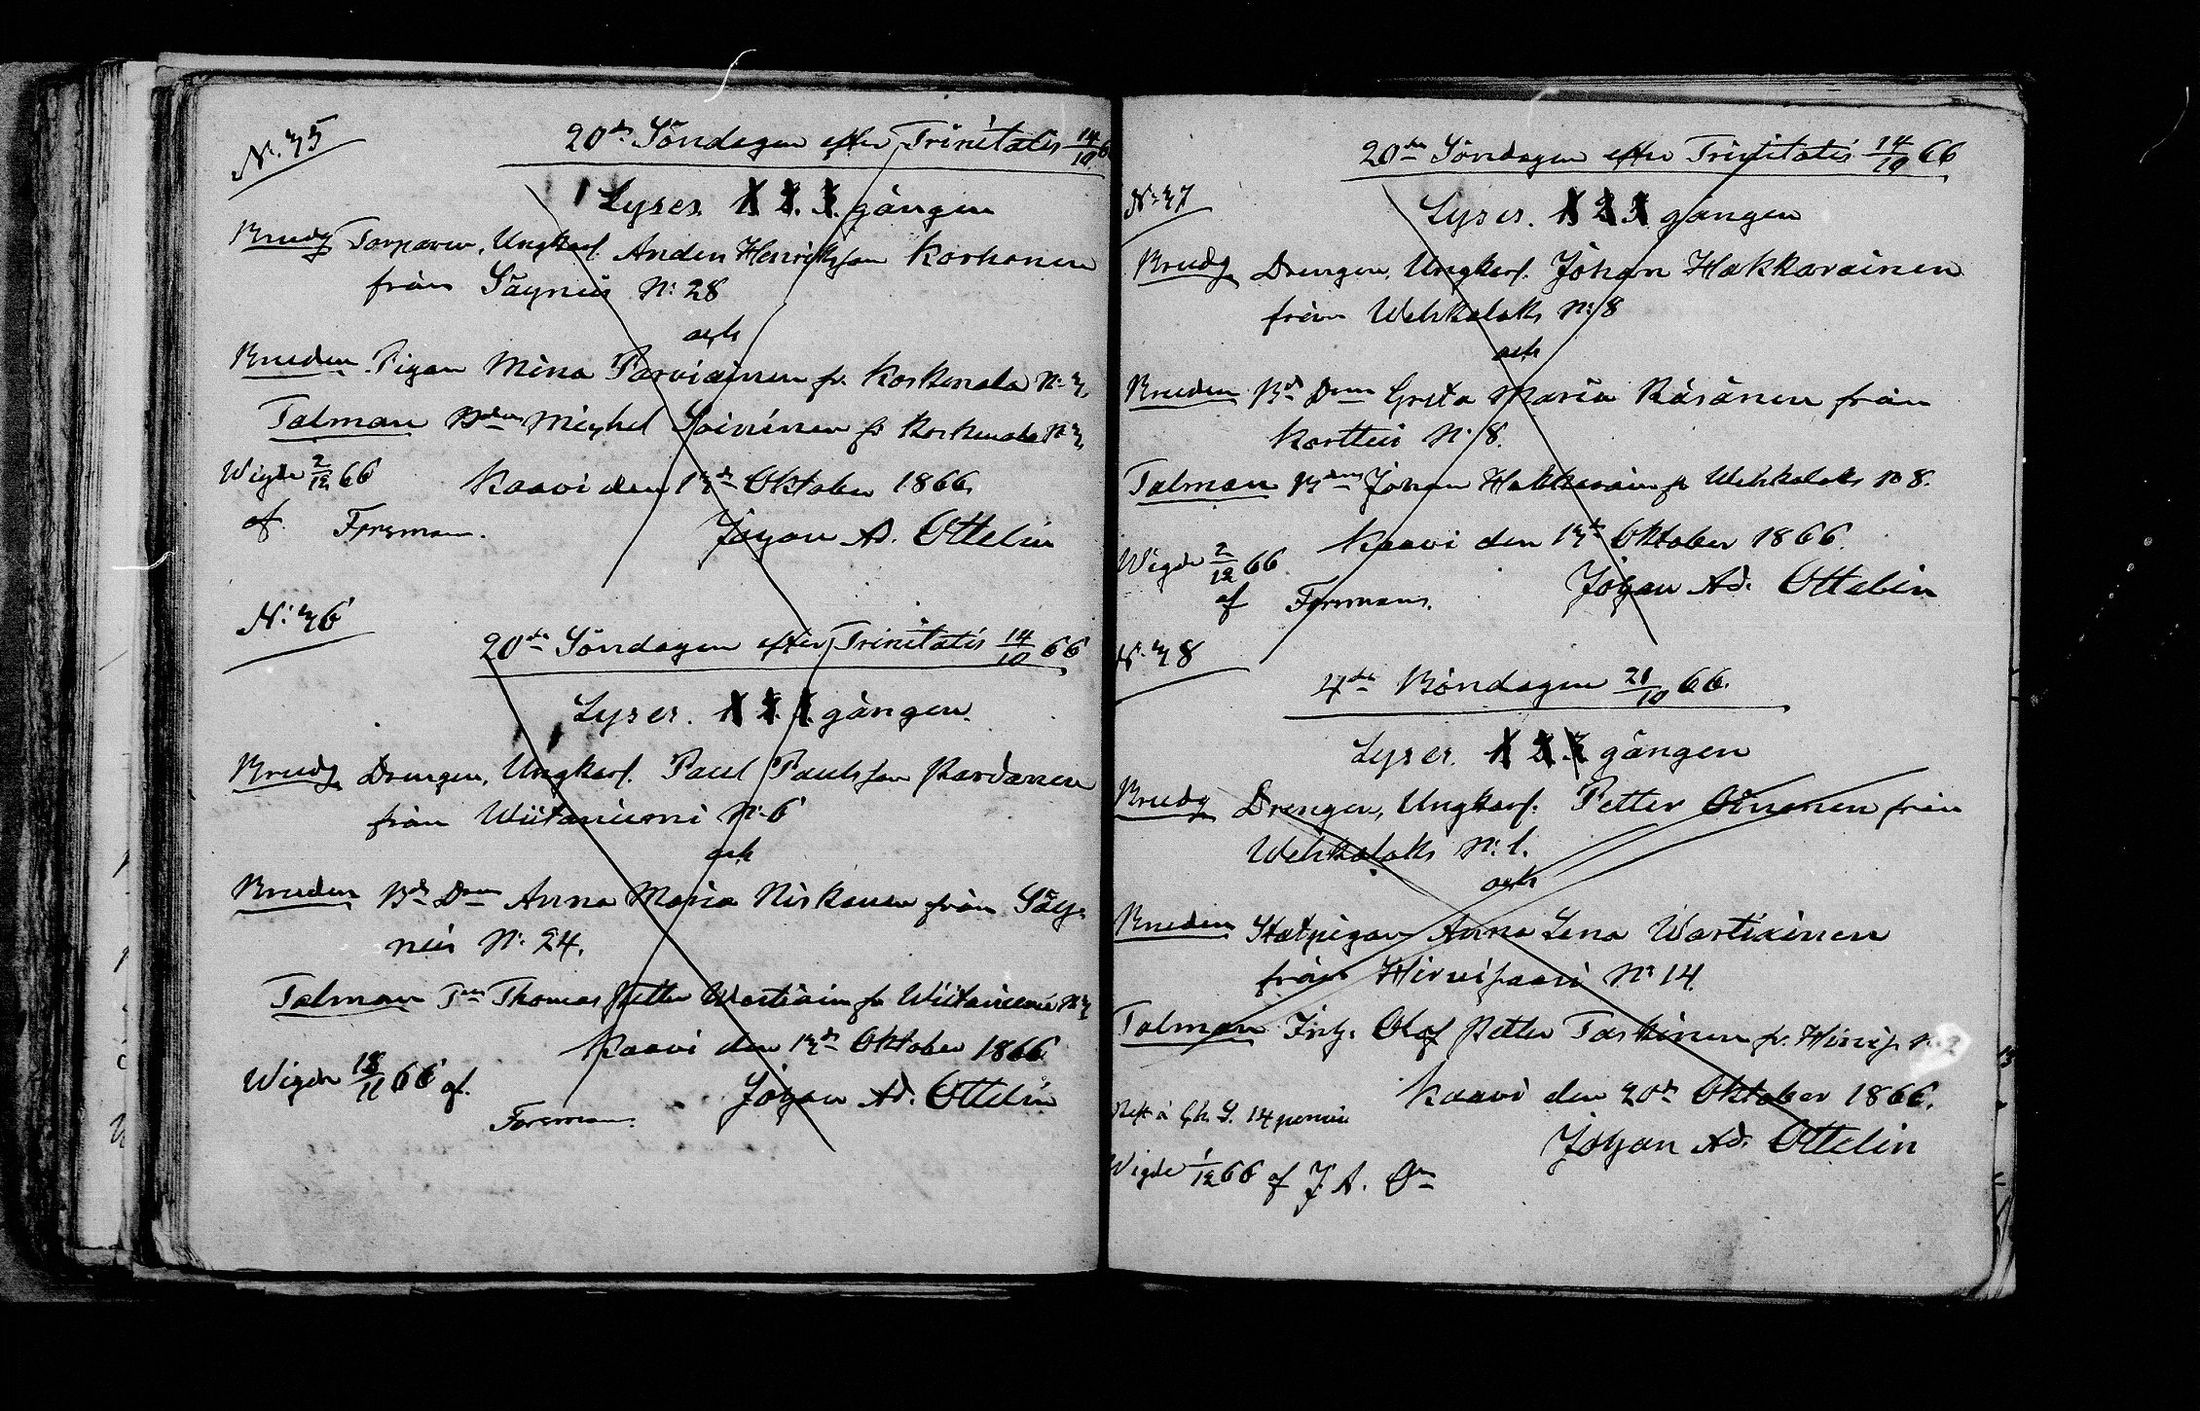 N: 35
20de Söndagen efter Trinitatis 14/10 6
Lyses. 1. 2. 3. gången
Brudg Torparen, Ungkarl. Anders Henriksson Korhonen
från Säyneis N: 28
och
Bruden Pigan Mina Parviainen fr. Koskenala N:
Talman Bden Michel Soininen fr Koskenala N
Wigde 2/12 66 Kaavi den 13de Oktober 1866.
af Forsman. Johan Ad. Ottelin
N: 36
20de Söndagen efter Trinitatis 14/10 66
Lyses. 1 2. 3. gången.
Brudg Drengen, Ungkarl. Paul Paulsson Pardanen
från Wiitaniemi N: 6
och
Bruden Bd Dren Anna Maria Niskanen från Säy-
neis N: 24.
Talman Thomas Petter Wartiain fr Wiitaniemi N
Kaavi den 13de Oktober 1866
Wigde 18/11 66 af. Johan Ad. Ottelin
Forsman.
20de Söndagen efter Trinitatis 14/10 66
N: 37
Lyses. 1 2 3 gången
Brudg Drengen, Ungkarl. Johan Hakkarainen
från Wehkalaks N: 8
och
Bruden Bd Dren Greta Maria Räsänen från
Kortteis N: 8.
Talman Bden Johan Hakkarain fr Wehkalaks N 8.
Kaavi den 13de Oktober 1866.
Wigde 2/12 66
af Forsman. Johan Ad. Ottelin
N: 38
4de Böndagen 21/10 66.
Lyses. 1 2. 3 gången
Brudg Drengen, Ungkarl. Petter Oinonen från
Wehkalaks N: 1.
och
Bruden Statpigan Anna Lena Wartiainen
från Hirvisaari N: 14
Talman Inh. Olof Petter Taskinen fr. Hirvis. N:
Kaavi den 20de Oktober 1866.
14 penni
Johan Ad. Ottelin
Wigde 1/12 66 af J. A. On